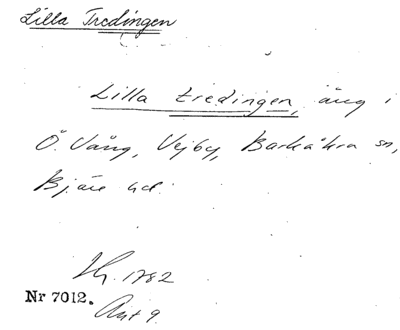 Lilla Tredingen
Lilla tredingen, äng i
Ö. Vång, Vejby, Barkåkra sn,
Bjäre hd.
1782
Nr 7012.
Akt 9